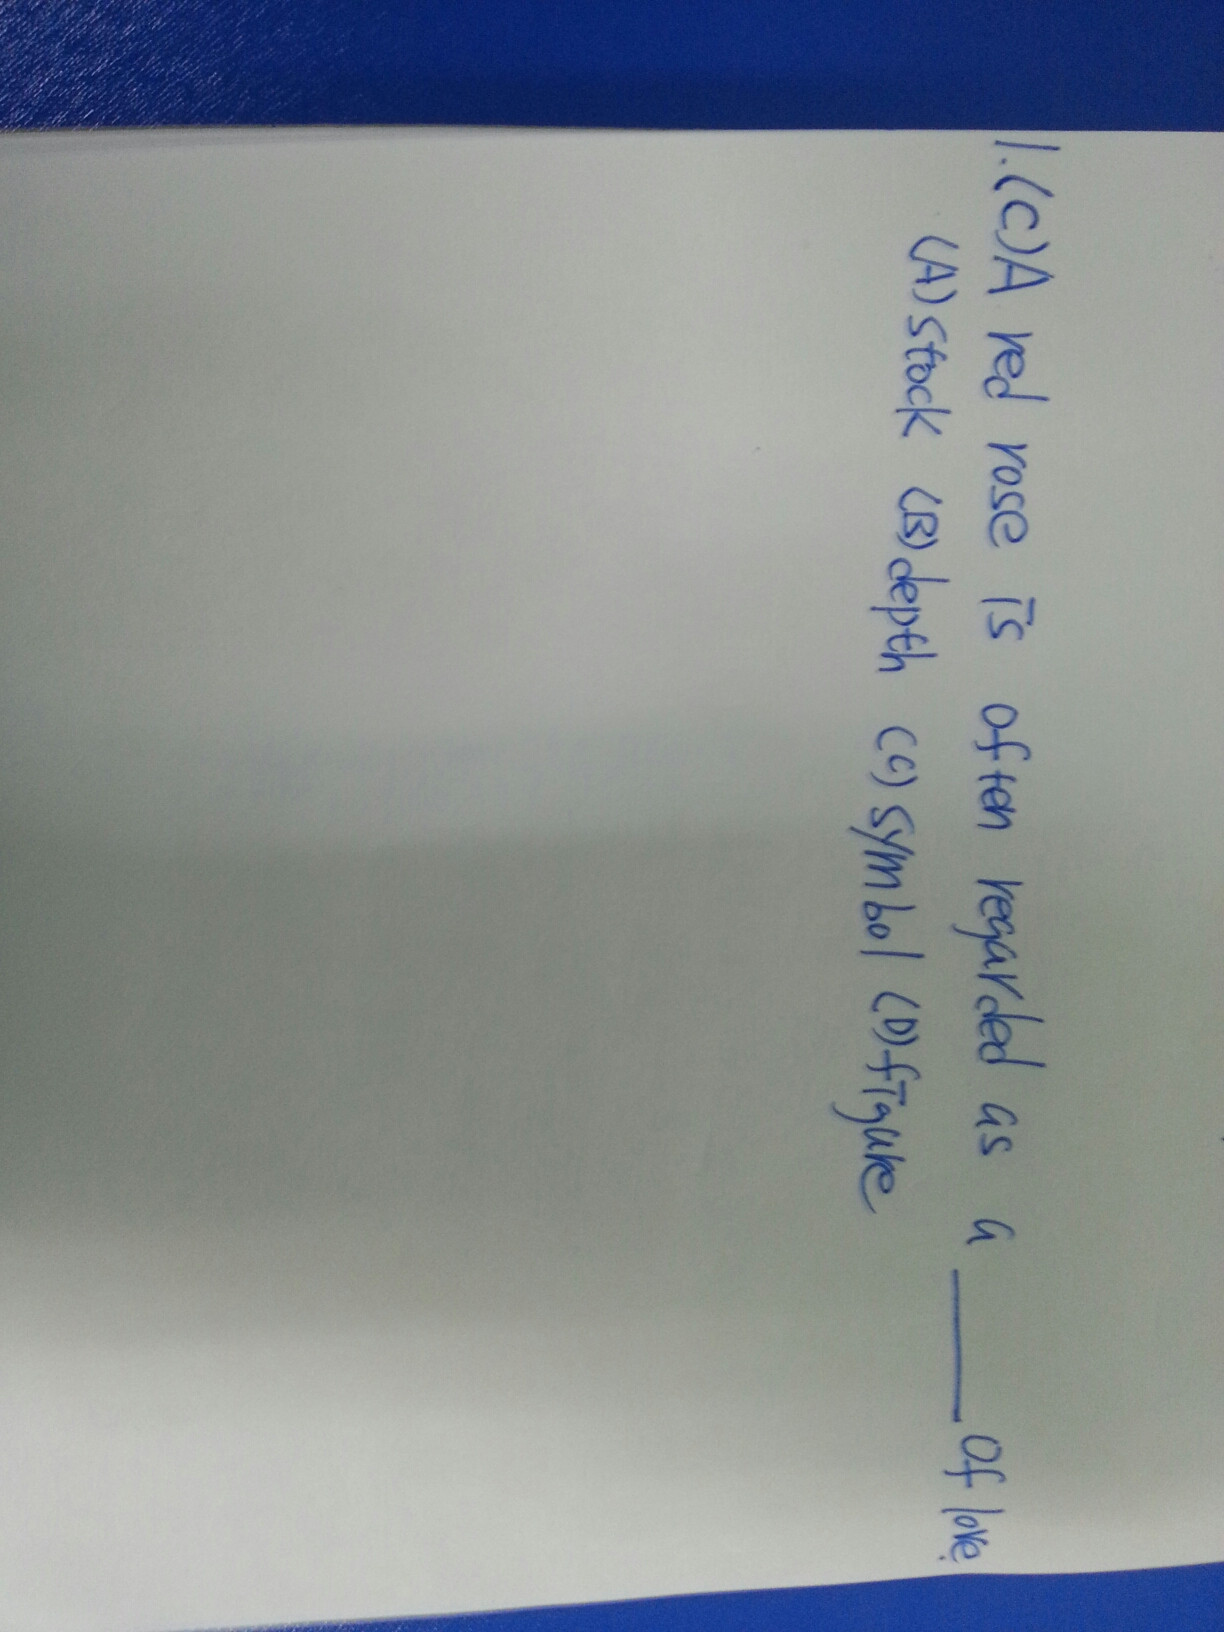 1.(C)A red rose is often regarded as a ______ of love.
(A)stock (B)depth (C)symbol (D)figure